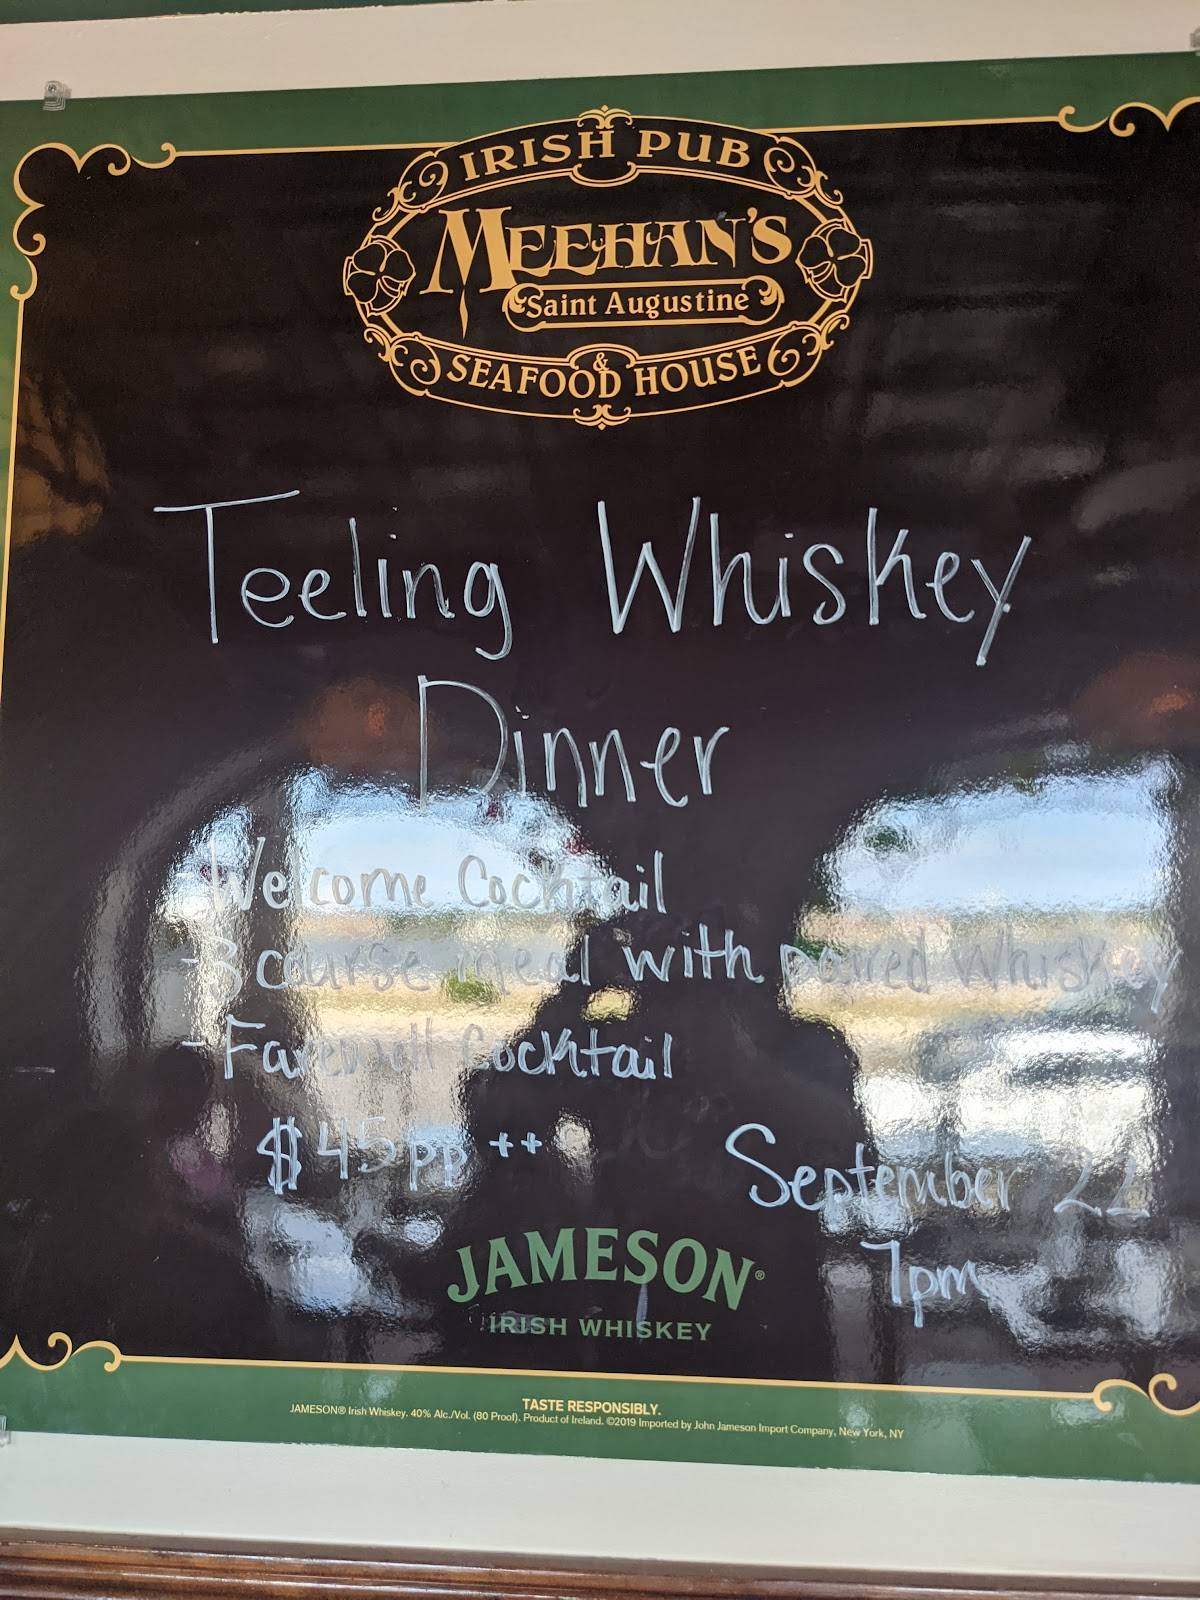 IRISH PUB
MEEHAN'S
Saint Augustine
&
SEAFOOD HOUSE
Teeling Whiskey
Dinner
- Welcome Cocktail
- 3 course meal with paired whiskey
- Farewell Cocktail
$45pp ++
September 22
7pm
JAMESON®
IRISH WHISKEY
TASTE RESPONSIBLY.
JAMESON® Irish Whiskey. 40% Alc./Vol. (80 Proof). Product of Ireland. ©2019 Imported by John Jameson Import Company, New York, NY